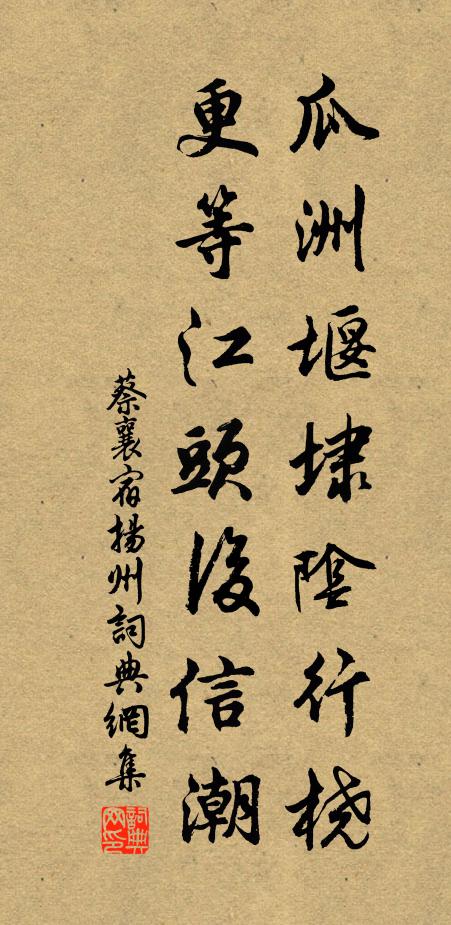 瓜洲堰埭陰行橈
更等江頭後信潮
蔡襄宿揚州詞典網集
詞典
网印